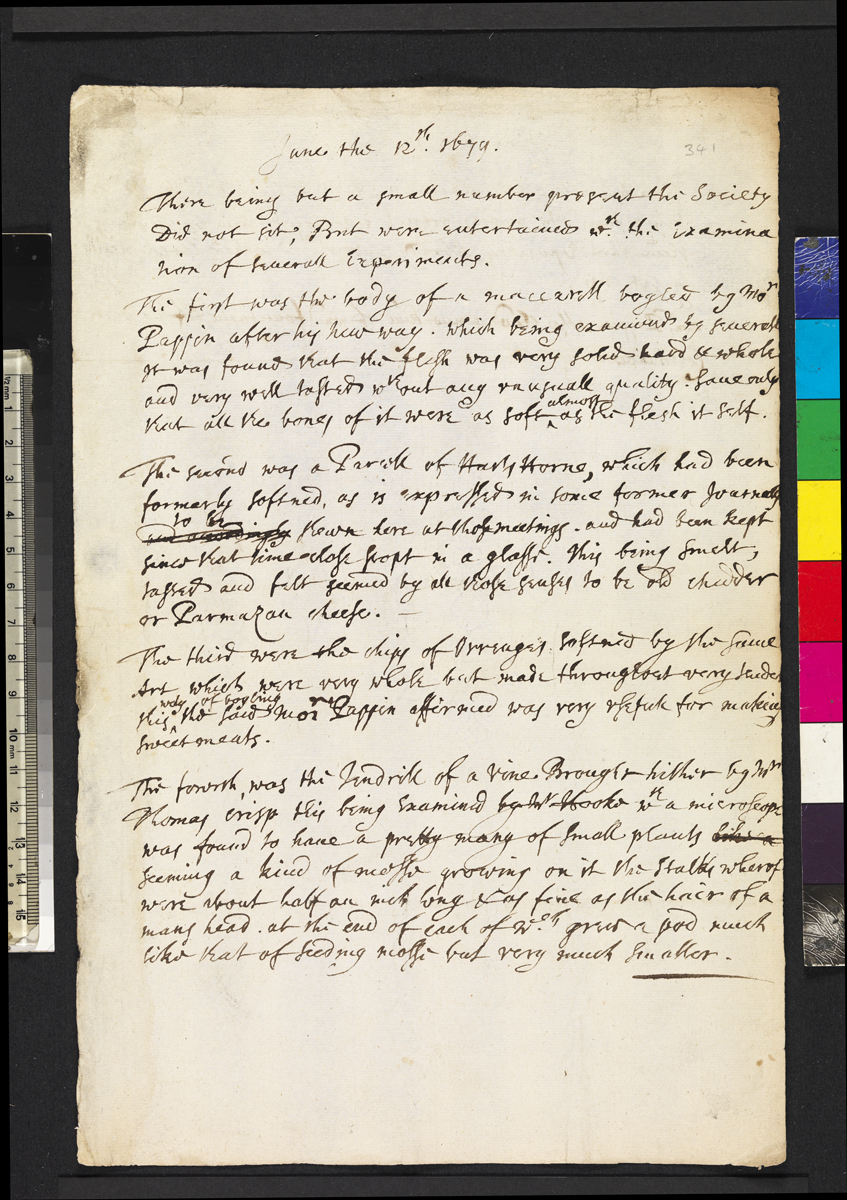 June the 12th. 1679.
341
There being but a small number present the Society
Did not sit, But were entertained wth. the Examina
tion of severall Experiments.
The first was the body of a maccarell boyled by Mor
Pappin after his new way. which being examined by severall
it was found that the flesh was very solid hard & whole
and very well tasted wthout any unusuall quality save only
that all the bones of it were as soft almost as the flesh it self.
The second was a Parcell of Harts Horne, which had been
formerly softned, as is expressed in some former Journalls
and accordingly to be shewn here at those meetings. and had been kept
since that time close stopt in a glasse. This being smelt,
tasted and felt seemed by all those senses to be old chedder
or Parmazan cheese. —
The third were the chips of Orrenges softned by the same
Art, which were very whole but made throughout very tender
this way of boyling the said Mor Pappin affirmed was very usefull for making
sweet meats.
The fowrth, was the Tendrill of a vine Brought hither by Mr
Thomas Crisp this being Examined by Mr Hooke wth a microscope
was found to have a pretty many of small plants like a
seeming a kind of mosse growing on it the Stalks wherof
were about half an inch long & as fine as the hair of a
mans head. at the end of each of wch grew a pod much
like that of seeding mosse but very much smaller.